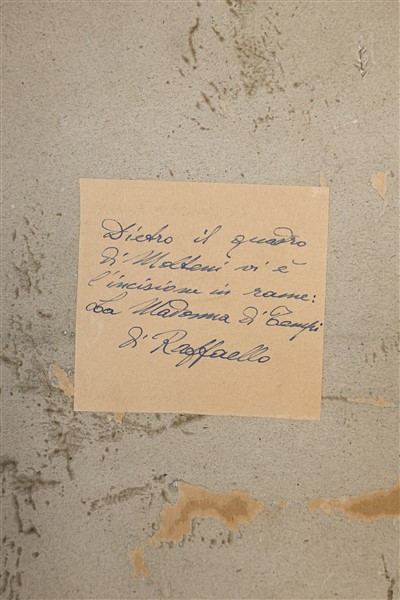 Dietro il quadro
di Molteni vi è
l'incisione in rame:
La Madonna di Tempi
di Raffaello